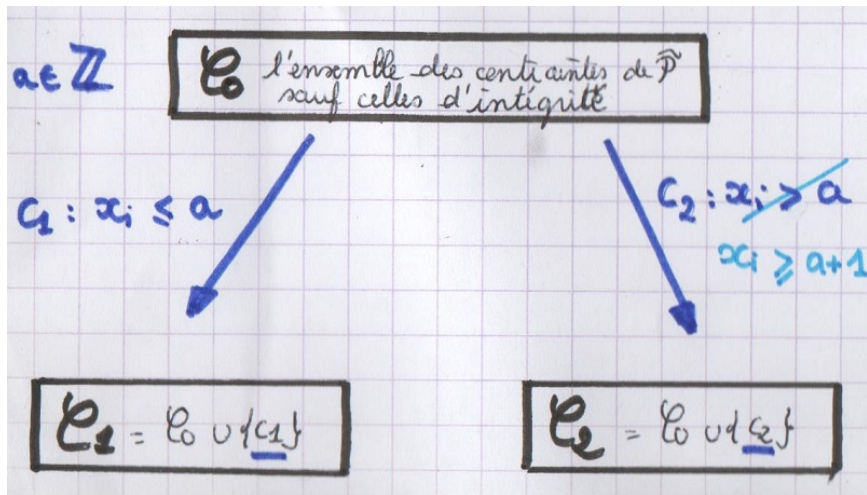 a ∈ ℤ
𝒞₀ l'ensemble des contraintes de P̃
sauf celles d'intégrité
C₁ : xᵢ ≤ a
C₂ : xᵢ > a
xᵢ ≥ a+1
𝒞₁ = 𝒞₀ ∪ {c1}
𝒞₂ = 𝒞₀ ∪ {c2}